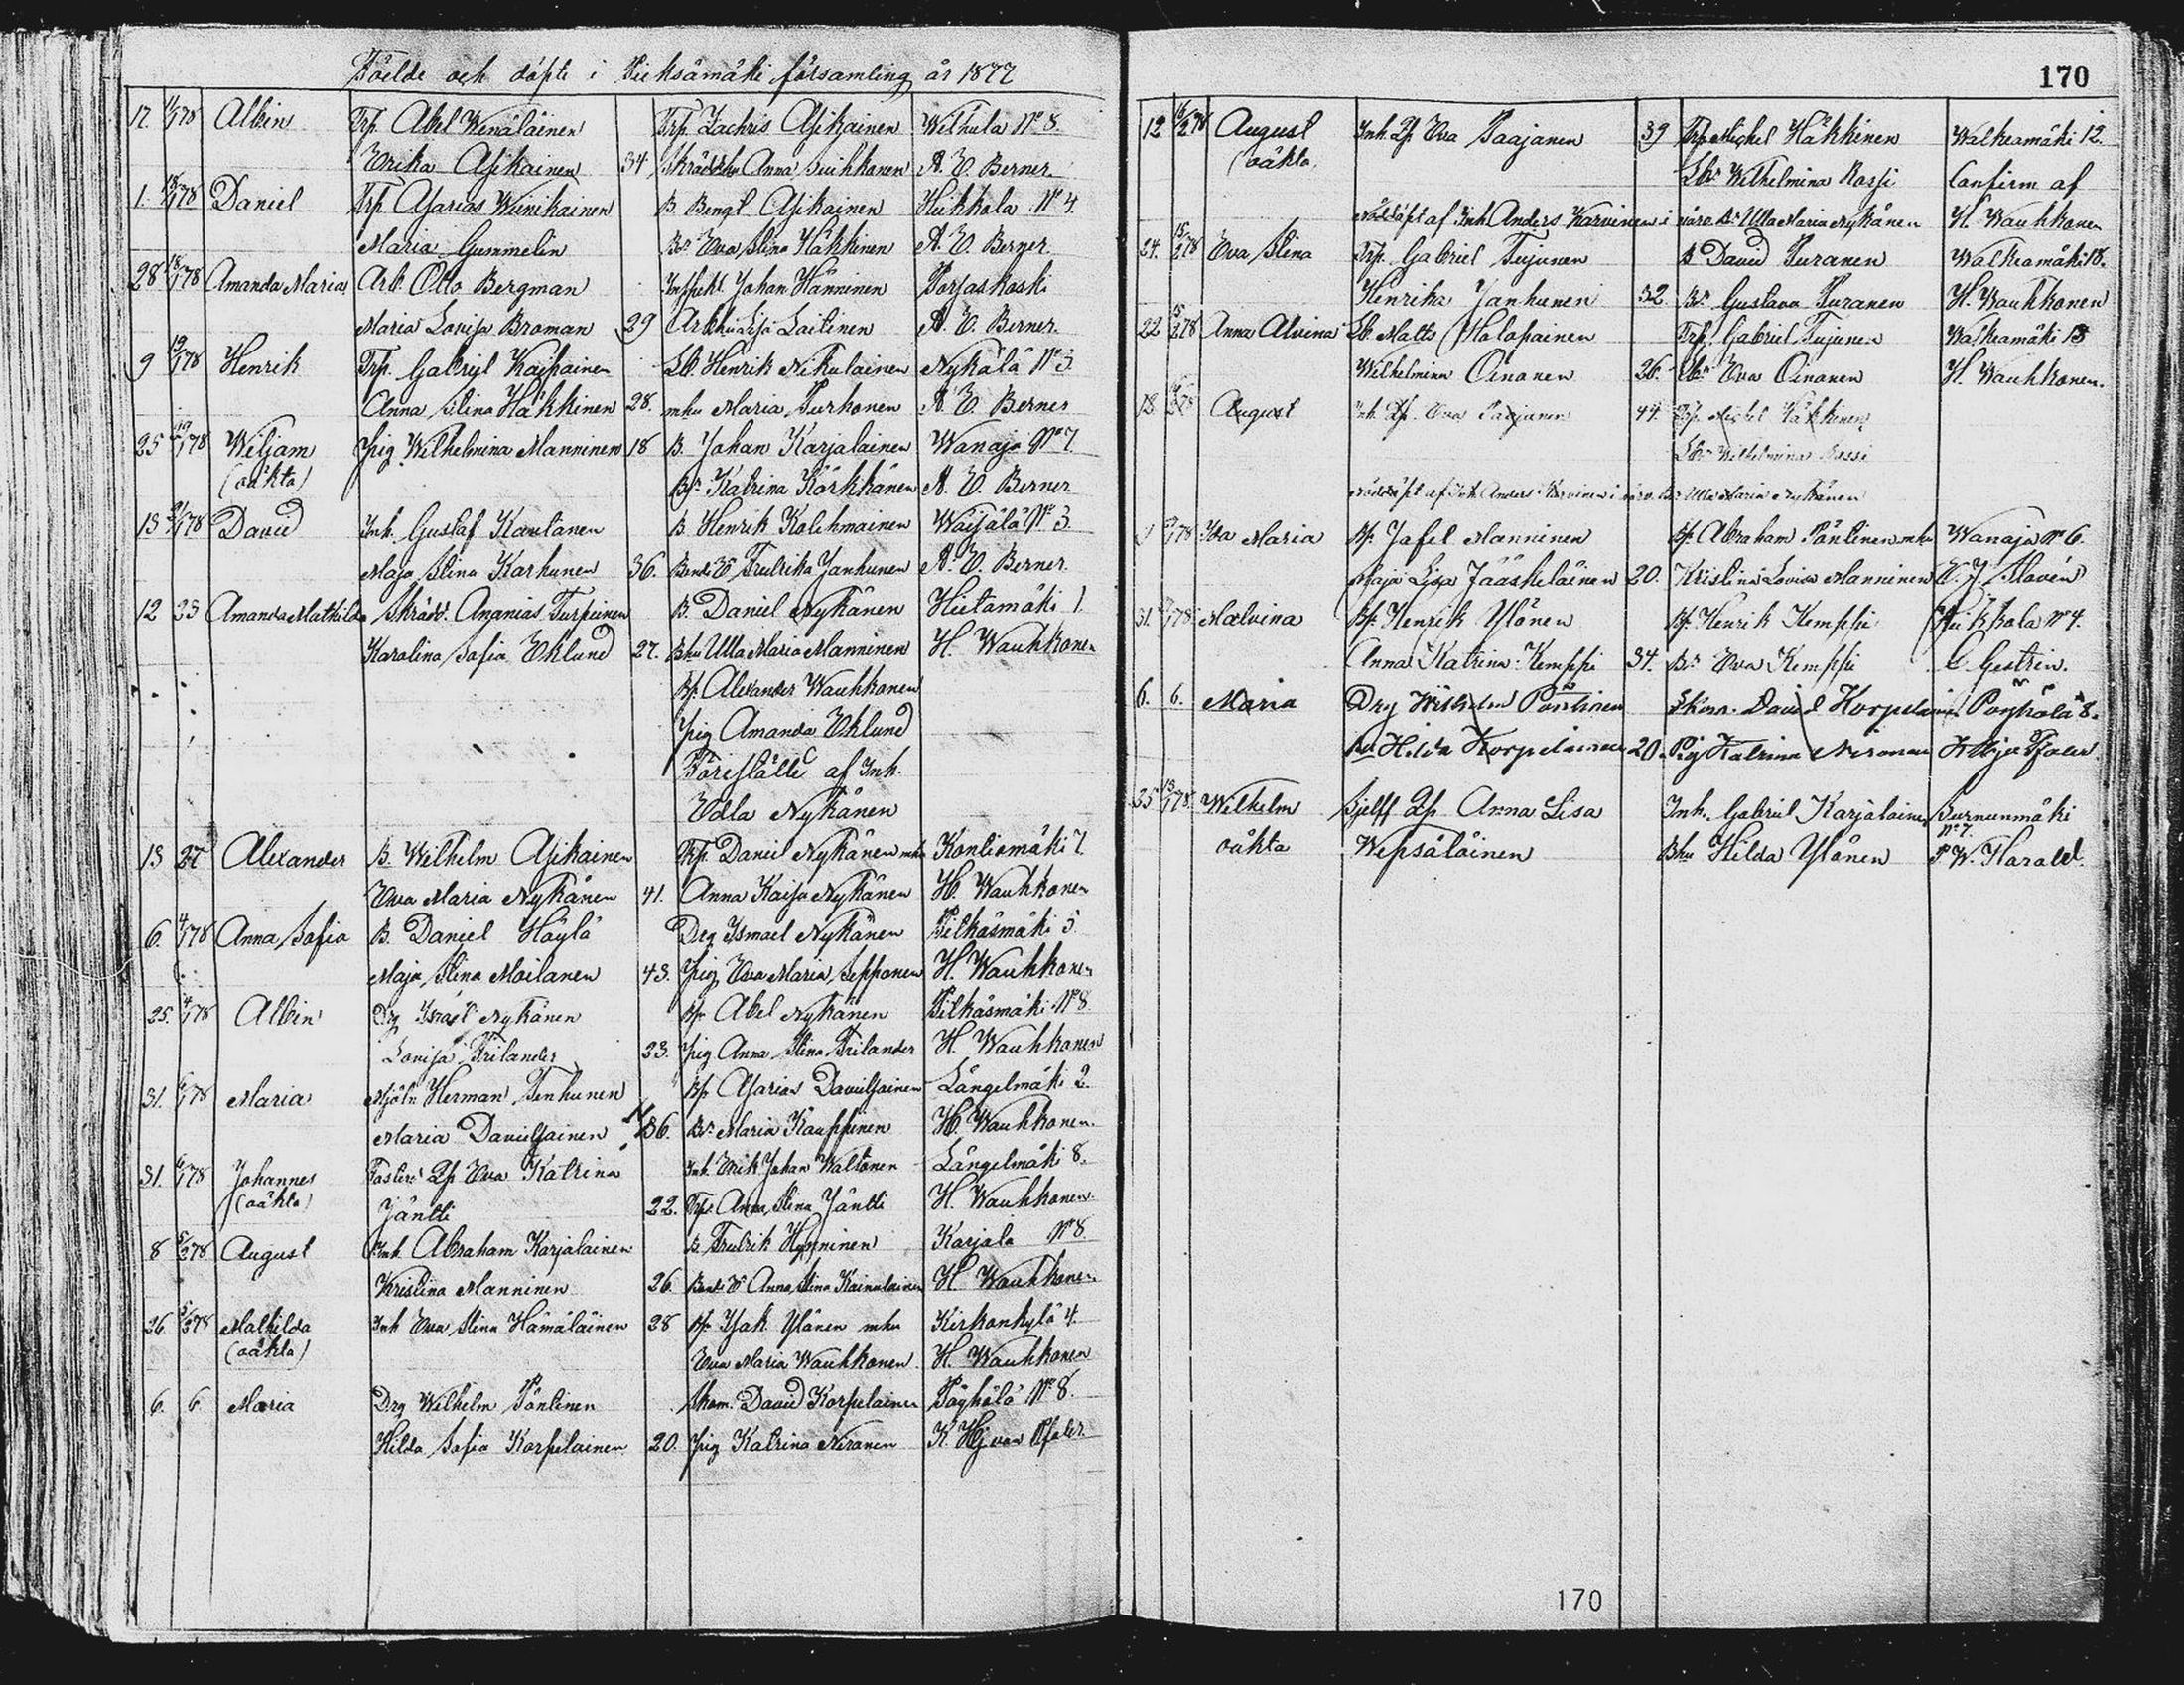 Födde och döpte i Pieksämäki församling år 1877
17. 11/1 78 Albin Trp. Abel Wenäläinen Trp. Zachris Asikainen Wilhula No 8.
Erika Asikainen 34 Skräddhu Anna Suihkonen A. E. Berner.
1. 13/1 78 Daniel Trp. Asarias Weinikainen B. Bengt Asikainen Heikkola No 4.
Maria Gummelin Br Eva Stina Häkkinen A. E. Berner
28 18/1 78 Amanda Maria Arb. Otto Bergman Inspekt. Johan Hänninen Porsaskoski
Maria Lovisa Broman 29 Arbhu Lisa Laitinen A. E. Berner.
9 19/1 78 Henrik Trp. Gabriel Kaihainen Lb. Henrik Nikulainen Nykälä No 3.
Anna Stina Häkkinen 28. mhu Maria Purhonen A. E. Berner
25 /1 78 Wiljam Pig. Wilhelmina Manninen 18 B. Johan Karjalainen Wanaja No 7.
(oäkta) Br Katrina Körkkänen A. E. Berner
13 21/1 78 David Inh. Gustaf Kautanen B. Henrik Kolehmainen Waijälä No 3.
Maja Stina Karhunen 36. Fredrika Janhunen A. E. Berner.
12 23 Amanda Mathilda Skrädd. Ananias Turpeinen B. Daniel Nykänen Hietamäki 1.
Karolina Sofia Eklund 27. Bhu Ulla Maria Manninen H. Wauhkonen
Bp. Alexander Wauhkonen
Pig Amanda Eklund
Föreställt af Inh.
Edla Nykänen
13 27 Alexander B. Wilhelm Asikainen Trp. Daniel Nykänen mhu Kontiomäki 7.
Eva Maria Nykänen 41. Anna Kaisa Nykänen H. Wauhkonen
6. 4/1 78 Anna Sofia B. Daniel Häylä Drg Ismael Nykänen Pilkäsmäki 5.
Maja Stina Moilanen 43. Pig Eva Maria Sepponen H. Wauhkonen
25. 4/1 78 Albin Drg Israel Nykänen Bp. Abel Nykänen Pilkäsmäki No 8
Lovisa Frilander 23. Pig Anna Stina Frilander H. Wauhkonen
31. 6/1 78 Maria Mjöln. Herman Tenhunen Bp. Asarias Danielsainen Längelmäki 2.
Maria Danielsainen 36. Br Maria Kauppinen H. Wauhkonen.
31. 6/1 78 Johannes Qp Eva Katrina Inh. Erik Johan Waltonen Längelmäki 8.
(oäkta) Jäntti 22. Trp. Anna Stina Jäntti H. Wauhkonen.
8 5/2 78 August Inh. Abraham Karjalainen B. Fredrik Hynninen Karjala No 8
Kristina Manninen 26. Anna Stina Kainulainen H. Wauhkonen
26. 5/2 78 Mathilda Inh Eva Stina Hämäläinen 28 Bp. Isak Ylönen mhu Kirkonkylä 4.
(oäkta) Eva Maria Wauhkonen H. Wauhkonen
6. 6 Maria Drg Wilhelm Pöntinen Skom. David Korpelainen Pöyhölä No 8.
Hilda Sofia Korpelainen 20. Pig Katrina Niranen K. Hj von Pfaler.
170
12 16/2 78 August Inh. Qp Eva Paajanen 39 Trp. Michel Häkkinen Walkeamäki 12.
(oäkta. Lbr Wilhelmina Rossi Confirm af
Nöddöpt af Inh Anders Karvinen i närv. Br Ulla Maria Nykänen H. Wauhkonen
24. 15/2 78 Eva Stina Trp. Gabriel Tujunen B David Puranen Walkeamäki 18.
Henrika Janhunen 32. Br Gustava Puranen H. Wauhkonen
22 15/2 78 Anna Alvina Lb. Matts Holopainen Trp. Gabriel Tujunen Walkeamäki 13
Wilhelmina Oinonen 26. Lbr Eva Oinonen H. Wauhkonen.
12 August Inh. Qp. Eva Paajanen 44. Trp. Michel Häkkinen
Lbr Wilhelmina Rossi
Nöddöpt af Inh. Anders Karvinen i närv. Br Ulla Maria Nykänen
9 /1 78 Ida Maria Bp. Jafet Manninen Bp. Abraham Pöntinen mhu Wanaja No 6.
Maja Lisa Jääskeläinen 20. Kristina Lovisa Manninen K. J. Slovén
31. /1 78. Malvina Bp. Henrik Ylönen Bp. Henrik Kemppi Heikkola No 4.
Anna Katrina Kemppi 34. Br Eva Kemppi C. Gestrin.
6. 6. Maria Drg Wilhelm Pöntinen Skom. David Korpelainen Pöyhölä 8.
Hilda Korpelainen 20. Pig Katrina Niranen K Hj v Pfaler
25 13/1 78. Wilhelm Sjelff Qp Anna Lisa Inh. Gabriel Karjalainen Surnunmäki
No 7.
oäkta Wepsäläinen Bhu Hilda Ylönen P W. Harald.
170